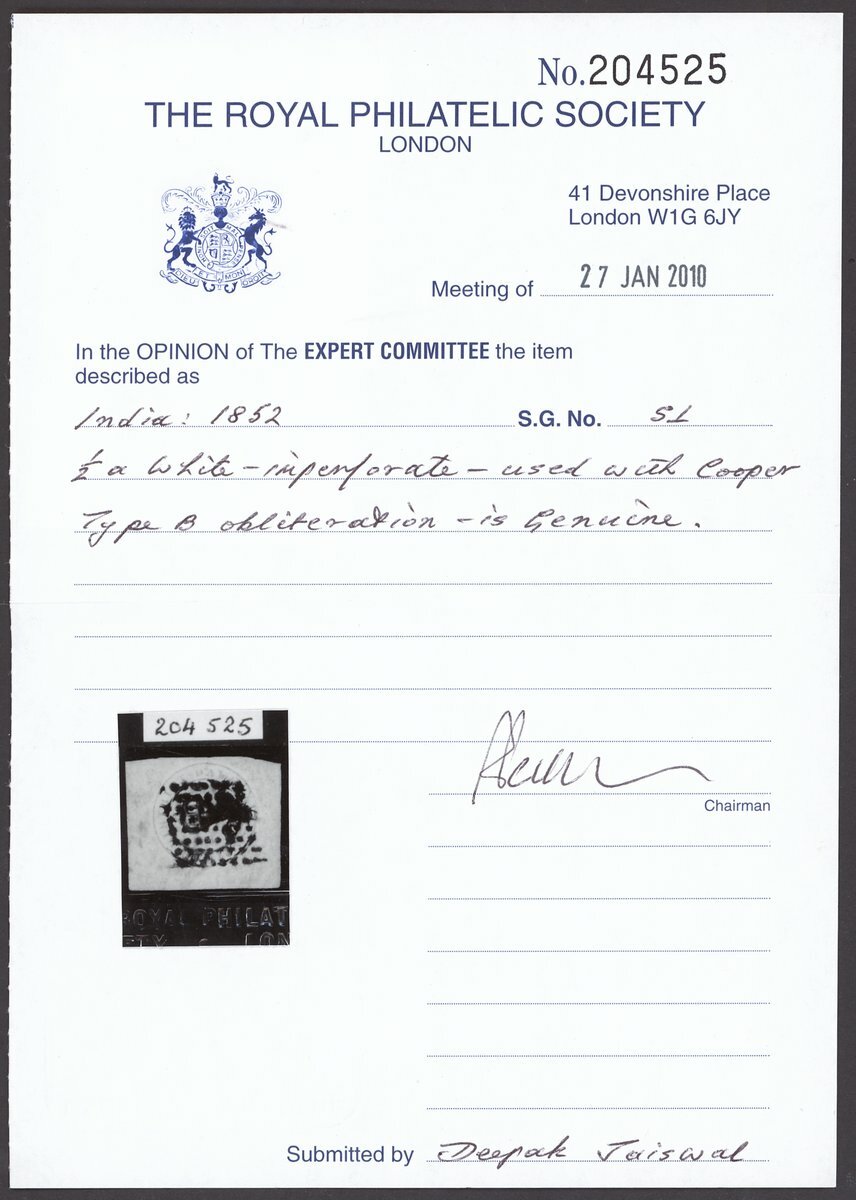 No.204525
THE ROYAL PHILATELIC SOCIETY
LONDON
41 Devonshire Place
London W1G 6JY
DIEU ET MON DROIT
Meeting of 27 JAN 2010
In the OPINION of The EXPERT COMMITTEE the item
described as
India: 1852 S.G. No. S1
½ a White - imperforate - used with Cooper
Type B obliteration - is Genuine.
204 525
ROYAL PHILAT
ETY LON
Chairman
Submitted by Deepak Jaiswal